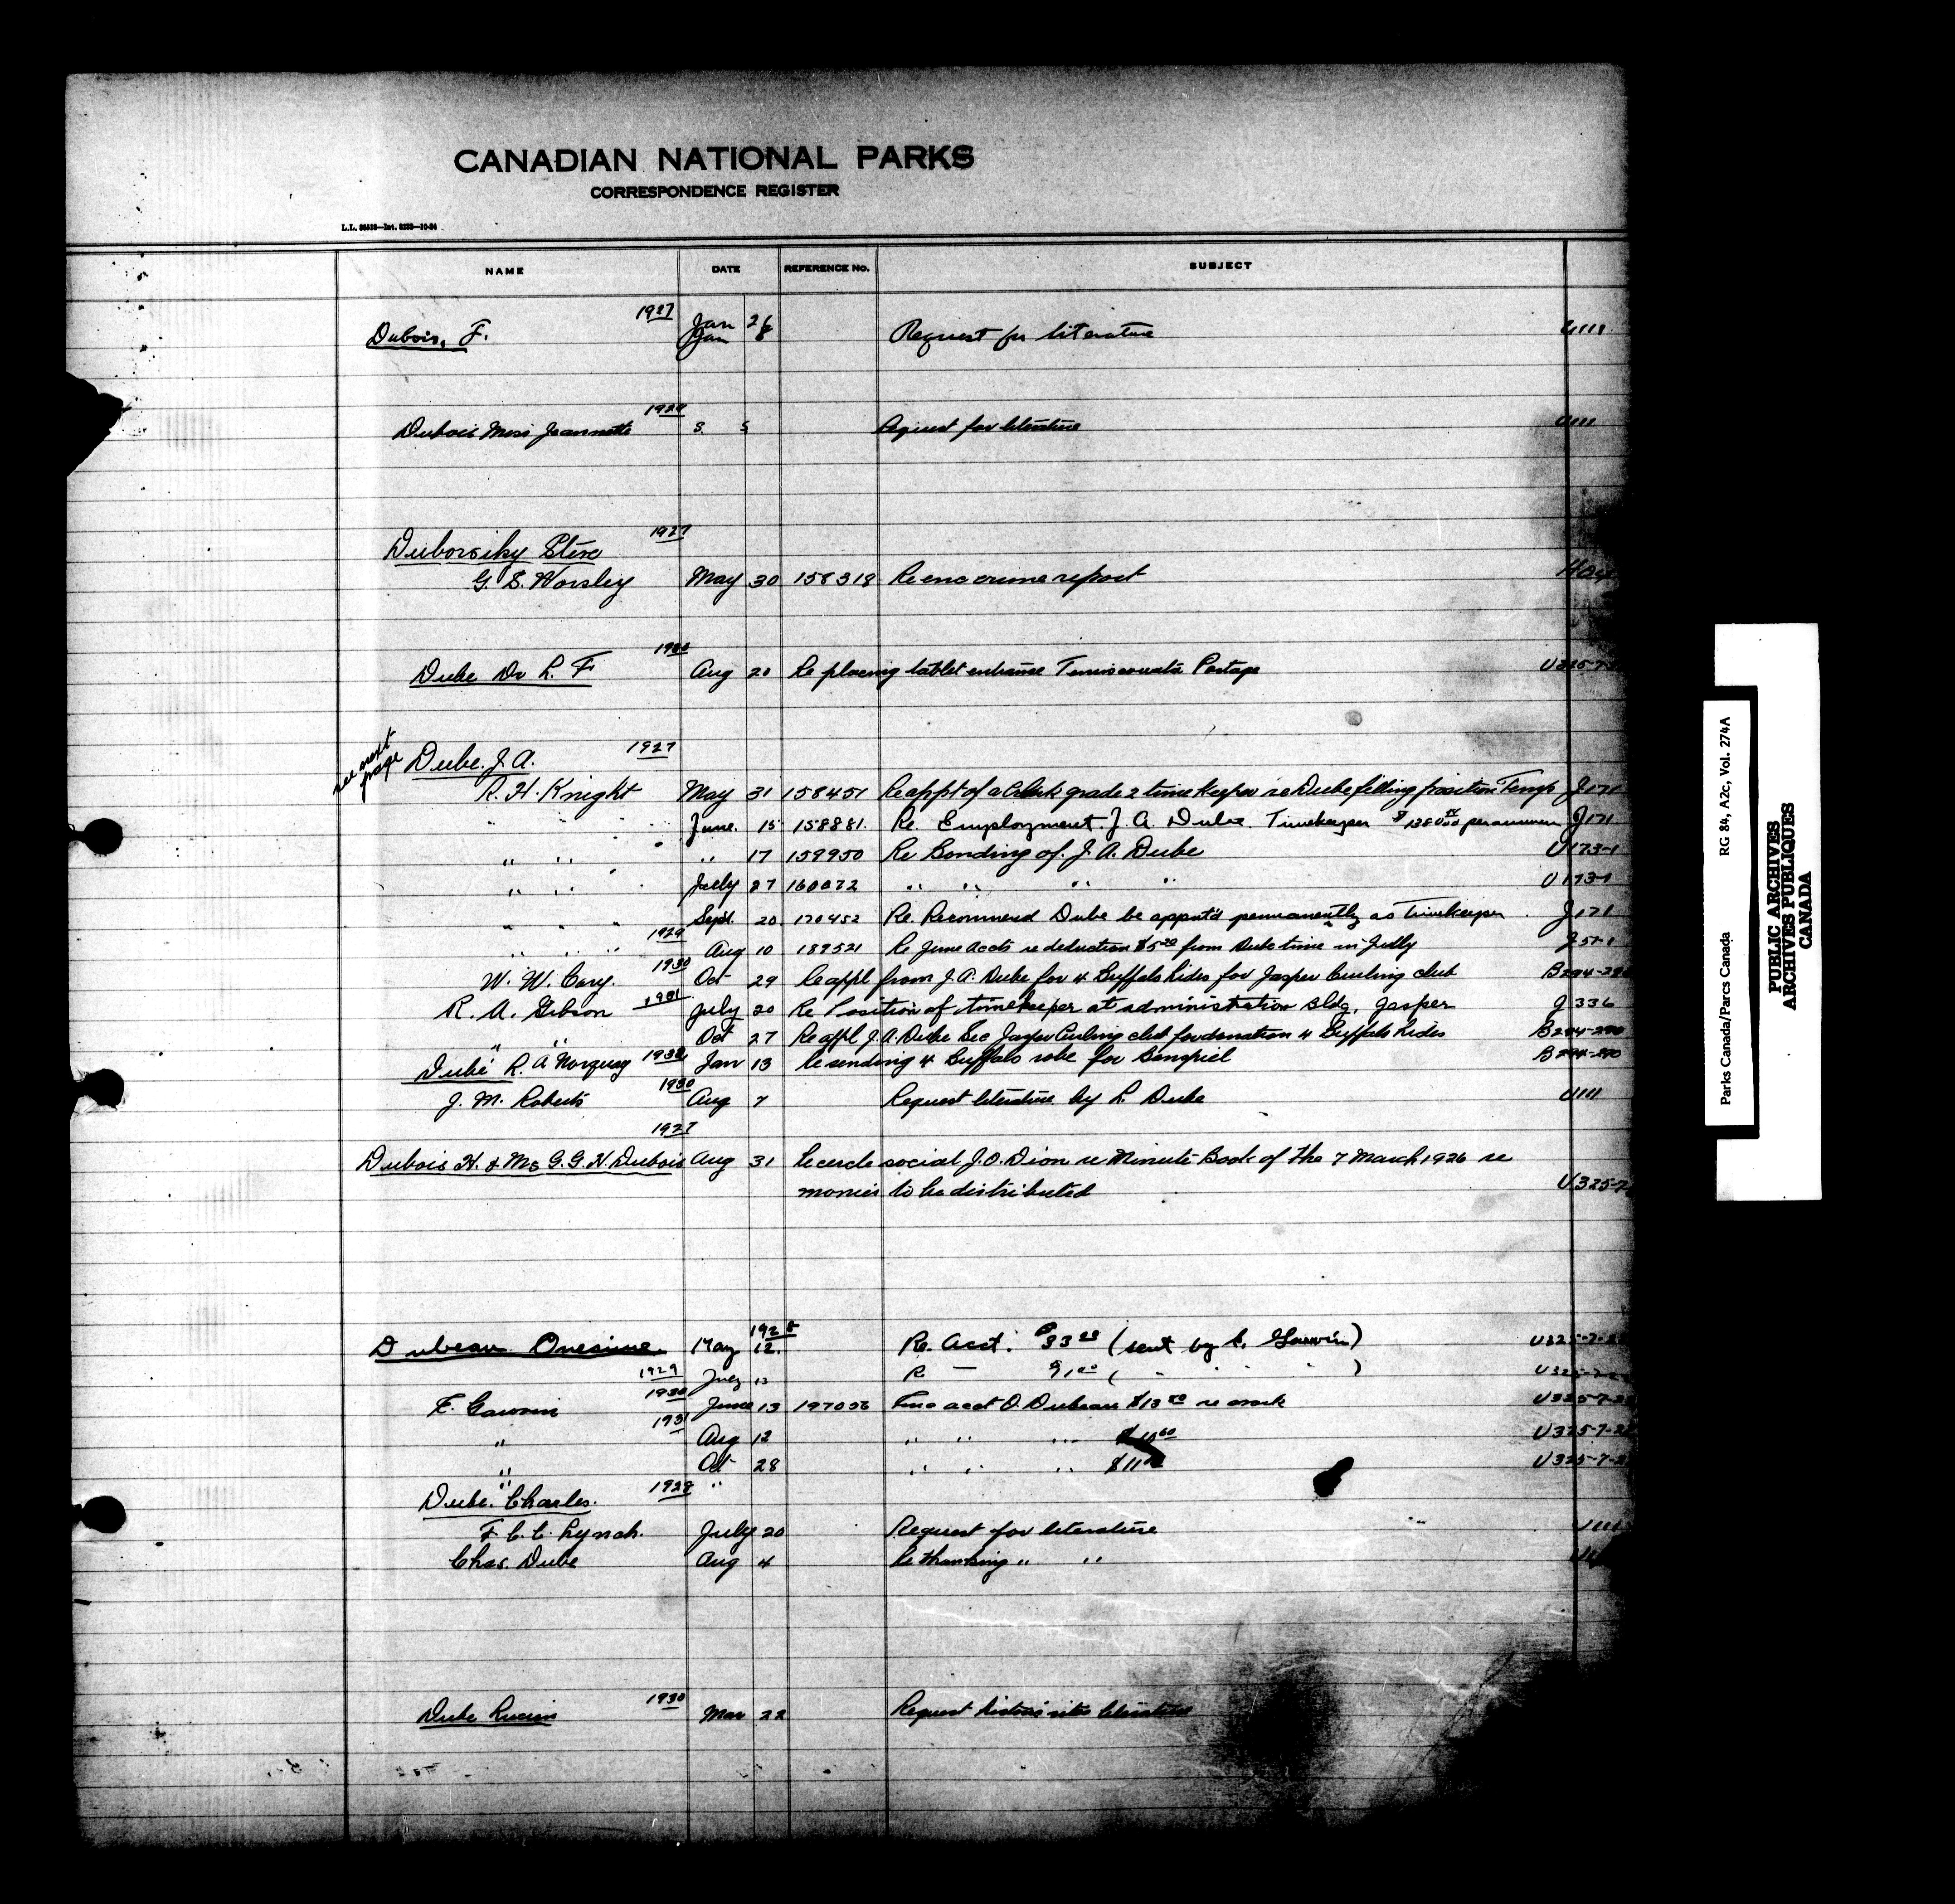 CANADIAN NATIONAL PARKS
CORRESPONDENCE REGISTER
NAME DATE REFERENCE No. SUBJECT
1927 Jan 26
Dubois, F. Jan 8 Request for literature U111
1929
Dubois Miss Jeannette S. 5 Request for literature U111
1927
Steve
G. S. Worsley May 30 158318 Re enc crime report
Dube Dr L. F Aug 20 Re placing tablet entrance Temiscouata Portage
see next page
Dube. J. A. 1927
R. H. Knight May 31 158451 Re appt of a Clerk grade 2 timekeeper re Dube filling position Temp J171
" " " June. 15 158881. Re. Employment. J. A. Dube. Timekeeper $1380.00 per annum J171
" " " " 17 159950 Re Bonding of. J. A. Dube U173-1
" " " July 27 160072 " " " " U173-1
" " " Sept. 20 170452 Re. Recommend Dube be appnt'd permanently as Timekeeper J171
1929
" " " Aug 10 189521 Re June accts re deduction from Dube time in July
W. W. Cory. 1930 Oct 29 Re appl from J. A. Dube for 4 Buffalo hides for Jasper Curling club
R. A. Gibson 1931 July 20 Re Position of timekeeper at administration Bldg. Jasper J336
" " Oct 27 Re appl J. A. Dube Sec Jasper Curling club for donation 4 Buffalo hides
Dubé R. A Norquay Jan 13 Re sending 4 Buffalo robe for
1930
J. M. Roberts Aug 7 Request literature by L. Dube U111
1927
Dubois H. & G. G. H Dubois Aug 31 Re cercle social J. O. Dion re Minute Book of the 7 March 1926 re
monies to be distributed
1928
Dubeau Onesime. May 12. Re. Acct.
1929 July
1930
June 13 197056 acct O. Dubeau re work
1931
" Aug 12 " " "
" Oct 28 " " "
Dube. Charles.
F. C. C. Lynch. July 20 Request for literature
Chas. Dube Aug 4 Re thanking " "
1930
Dube Lucien Mar 22 Request historic sites literature
Parks Canada/Parcs Canada RG 84, A2c, Vol. 274A
PUBLIC ARCHIVES
ARCHIVES PUBLIQUES
CANADA